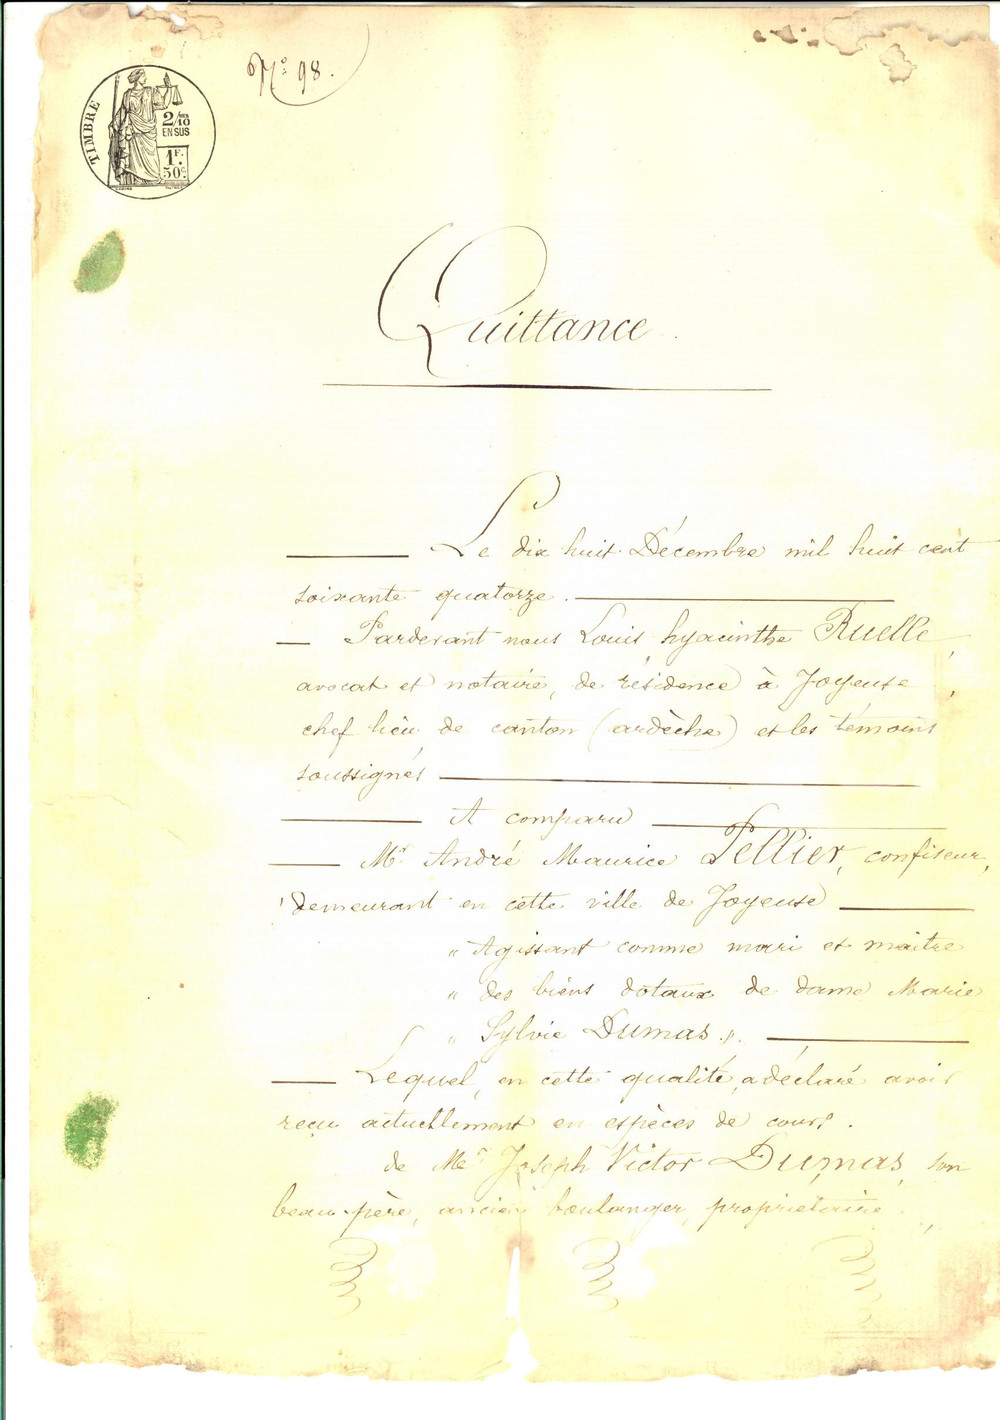 Nº 98.
TIMBRE
2/10 EN SUS
1F. 50c.
Quittance.
Le dix huit Décembre mil huit cent
soixante quatorze.
Pardevant nous Louis hyacinthe Ruelle,
avocat et notaire, de résidence à Joyeuse,
chef lieu de canton (ardèche) et les témoins
soussignés
A comparu
Mr André Maurice Pellier, confiseur,
demeurant en cette ville de Joyeuse
" Agissant comme mari et maitre
" des biens dotaux de dame Marie
" Sylvie Dumas ".
Lequel, en cette qualité, a déclaré avoir
reçu actuellement en espèces de cours.
de Mr Joseph Victor Dumas, son
beau-père, ancien boulanger, propriétaire,